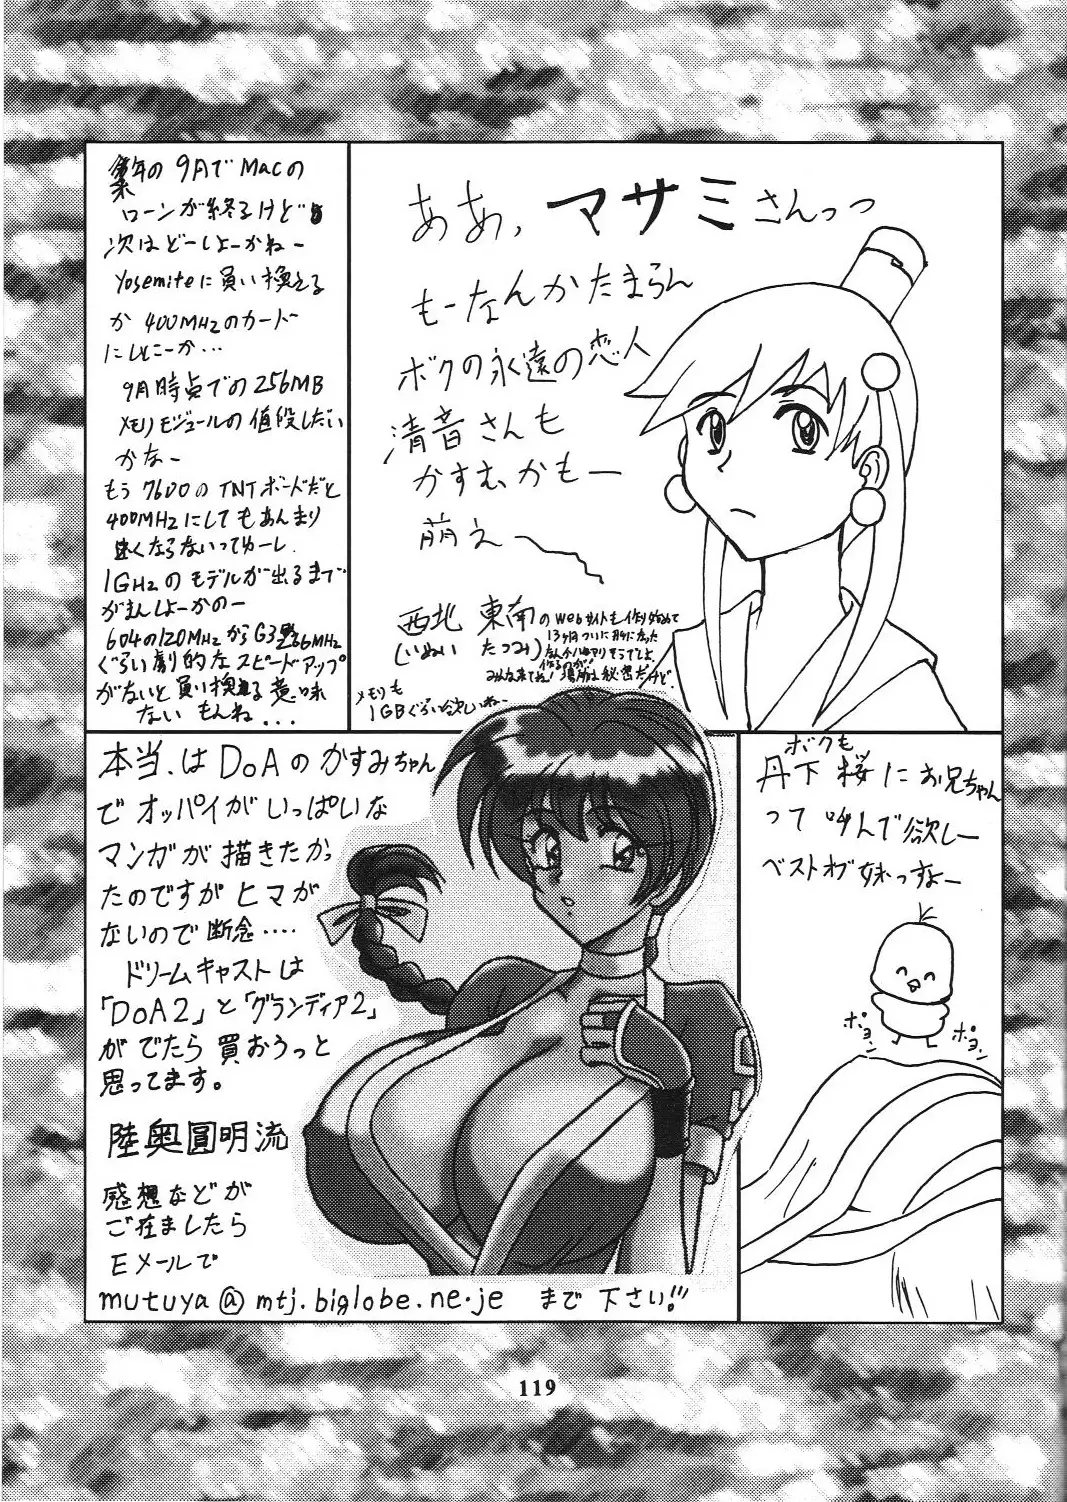 の9月でMacの
ローンが終るけど
次はどーしよーかねー
Yosemiteに買い換える
か 400MHzのカード
にしとこーか…
9月時点での256MB
メモリモジュールの値段しだい
かなー
もう7600のTNTボードだと
400MHzにしてもあんまり
速くならないってゆーし.
1GHzのモデルが出るまで
がまんしよーかのー
604の120MHzからG3
ぐらい劇的なスピードアップ
がないと買い換える意味
ないもんね...
ああ,マサミさんっっ
もーなんかたまらん
ボクの永遠の恋人
清音さんも
かすむかもー
萌えー
西北 東南の
(いぬい たつみ)
Webサイトも作り始めて
13ヶ月ついに
みんな来てね! 場所は秘密だけど.
メモリも
1GBぐらい欲しいねー
本当.はDoAのかすみちゃん
でオッパイがいっぱいな
マンガが描きたかっ
たのですがヒマが
ないので断念‥‥
ドリームキャストは
「DoA2」と「グランディア2」
がでたら買おうっと
思ってます。
陸奥圓明流
感想などが
ご在ましたら
Eメールで
mutuya@mtj.biglobe.ne.je まで下さい!!
ボクも
丹下桜にお兄ちゃん
って呼んで欲しー
ベストオブ妹っすよー
ポヨン
ポヨン
119